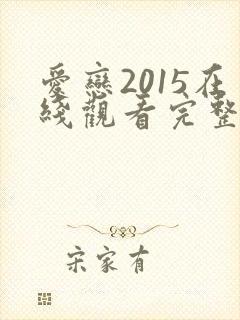 愛戀2015在
綫觀看完整
宋家有